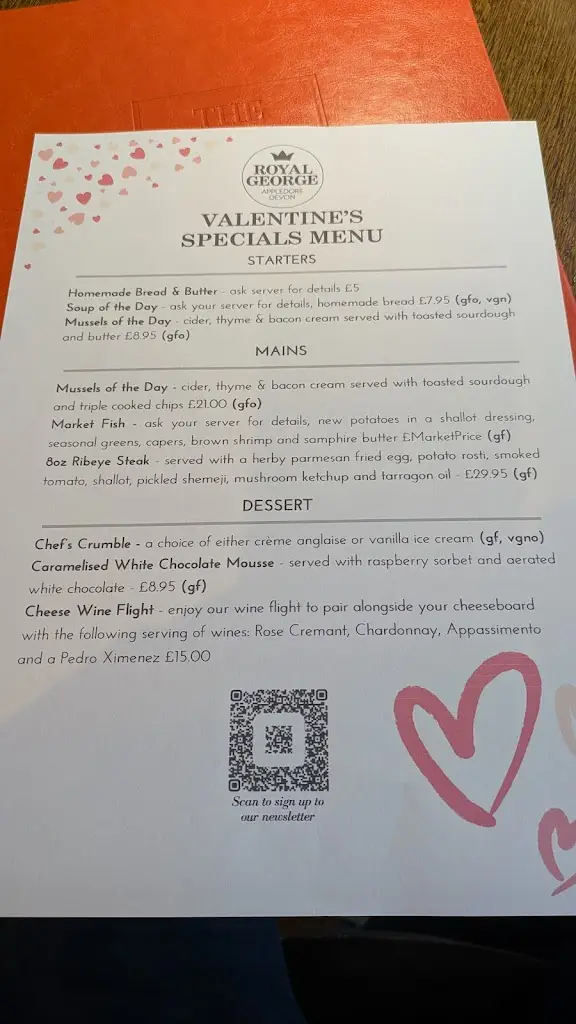 THE
ROYAL
GEORGE
APPLEDORE
DEVON
VALENTINE'S
SPECIALS MENU
STARTERS
Homemade Bread & Butter - ask server for details £5
Soup of the Day - ask your server for details, homemade bread £7.95 (gfo, vgn)
Mussels of the Day - cider, thyme & bacon cream served with toasted sourdough
and butter £8.95 (gfo)
MAINS
Mussels of the Day - cider, thyme & bacon cream served with toasted sourdough
and triple cooked chips £21.00 (gfo)
Market Fish - ask your server for details, new potatoes in a shallot dressing,
seasonal greens, capers, brown shrimp and samphire butter £MarketPrice (gf)
8oz Ribeye Steak - served with a herby parmesan fried egg, potato rosti, smoked
tomato, shallot, pickled shemeji, mushroom ketchup and tarragon oil - £29.95 (gf)
DESSERT
Chef's Crumble - a choice of either crème anglaise or vanilla ice cream (gf, vgno)
Caramelised White Chocolate Mousse - served with raspberry sorbet and aerated
white chocolate - £8.95 (gf)
Cheese Wine Flight - enjoy our wine flight to pair alongside your cheeseboard
with the following serving of wines: Rose Cremant, Chardonnay, Appassimento
and a Pedro Ximenez £15.00
Scan to sign up to
our newsletter